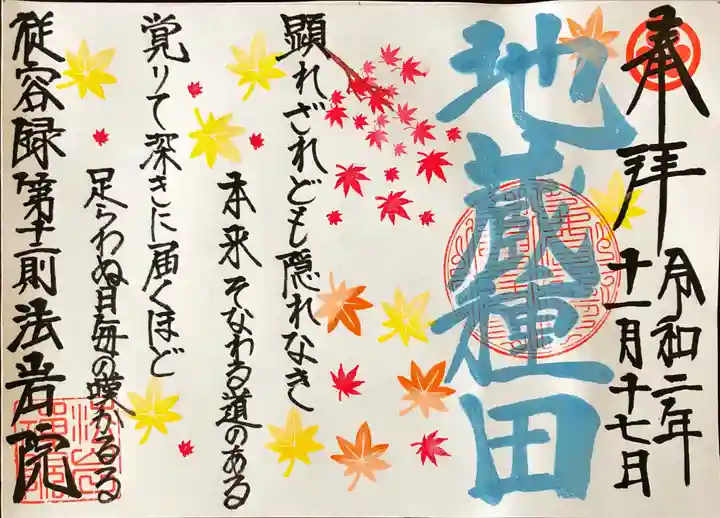 奉拝
令和二年
十一月十七日
地蔵種田
顕れざれども隠れなき
本来そなわる道のある
覚りて深きに届くほど
足らわぬ日毎の嘆かるる
従容録第十二則法岩院